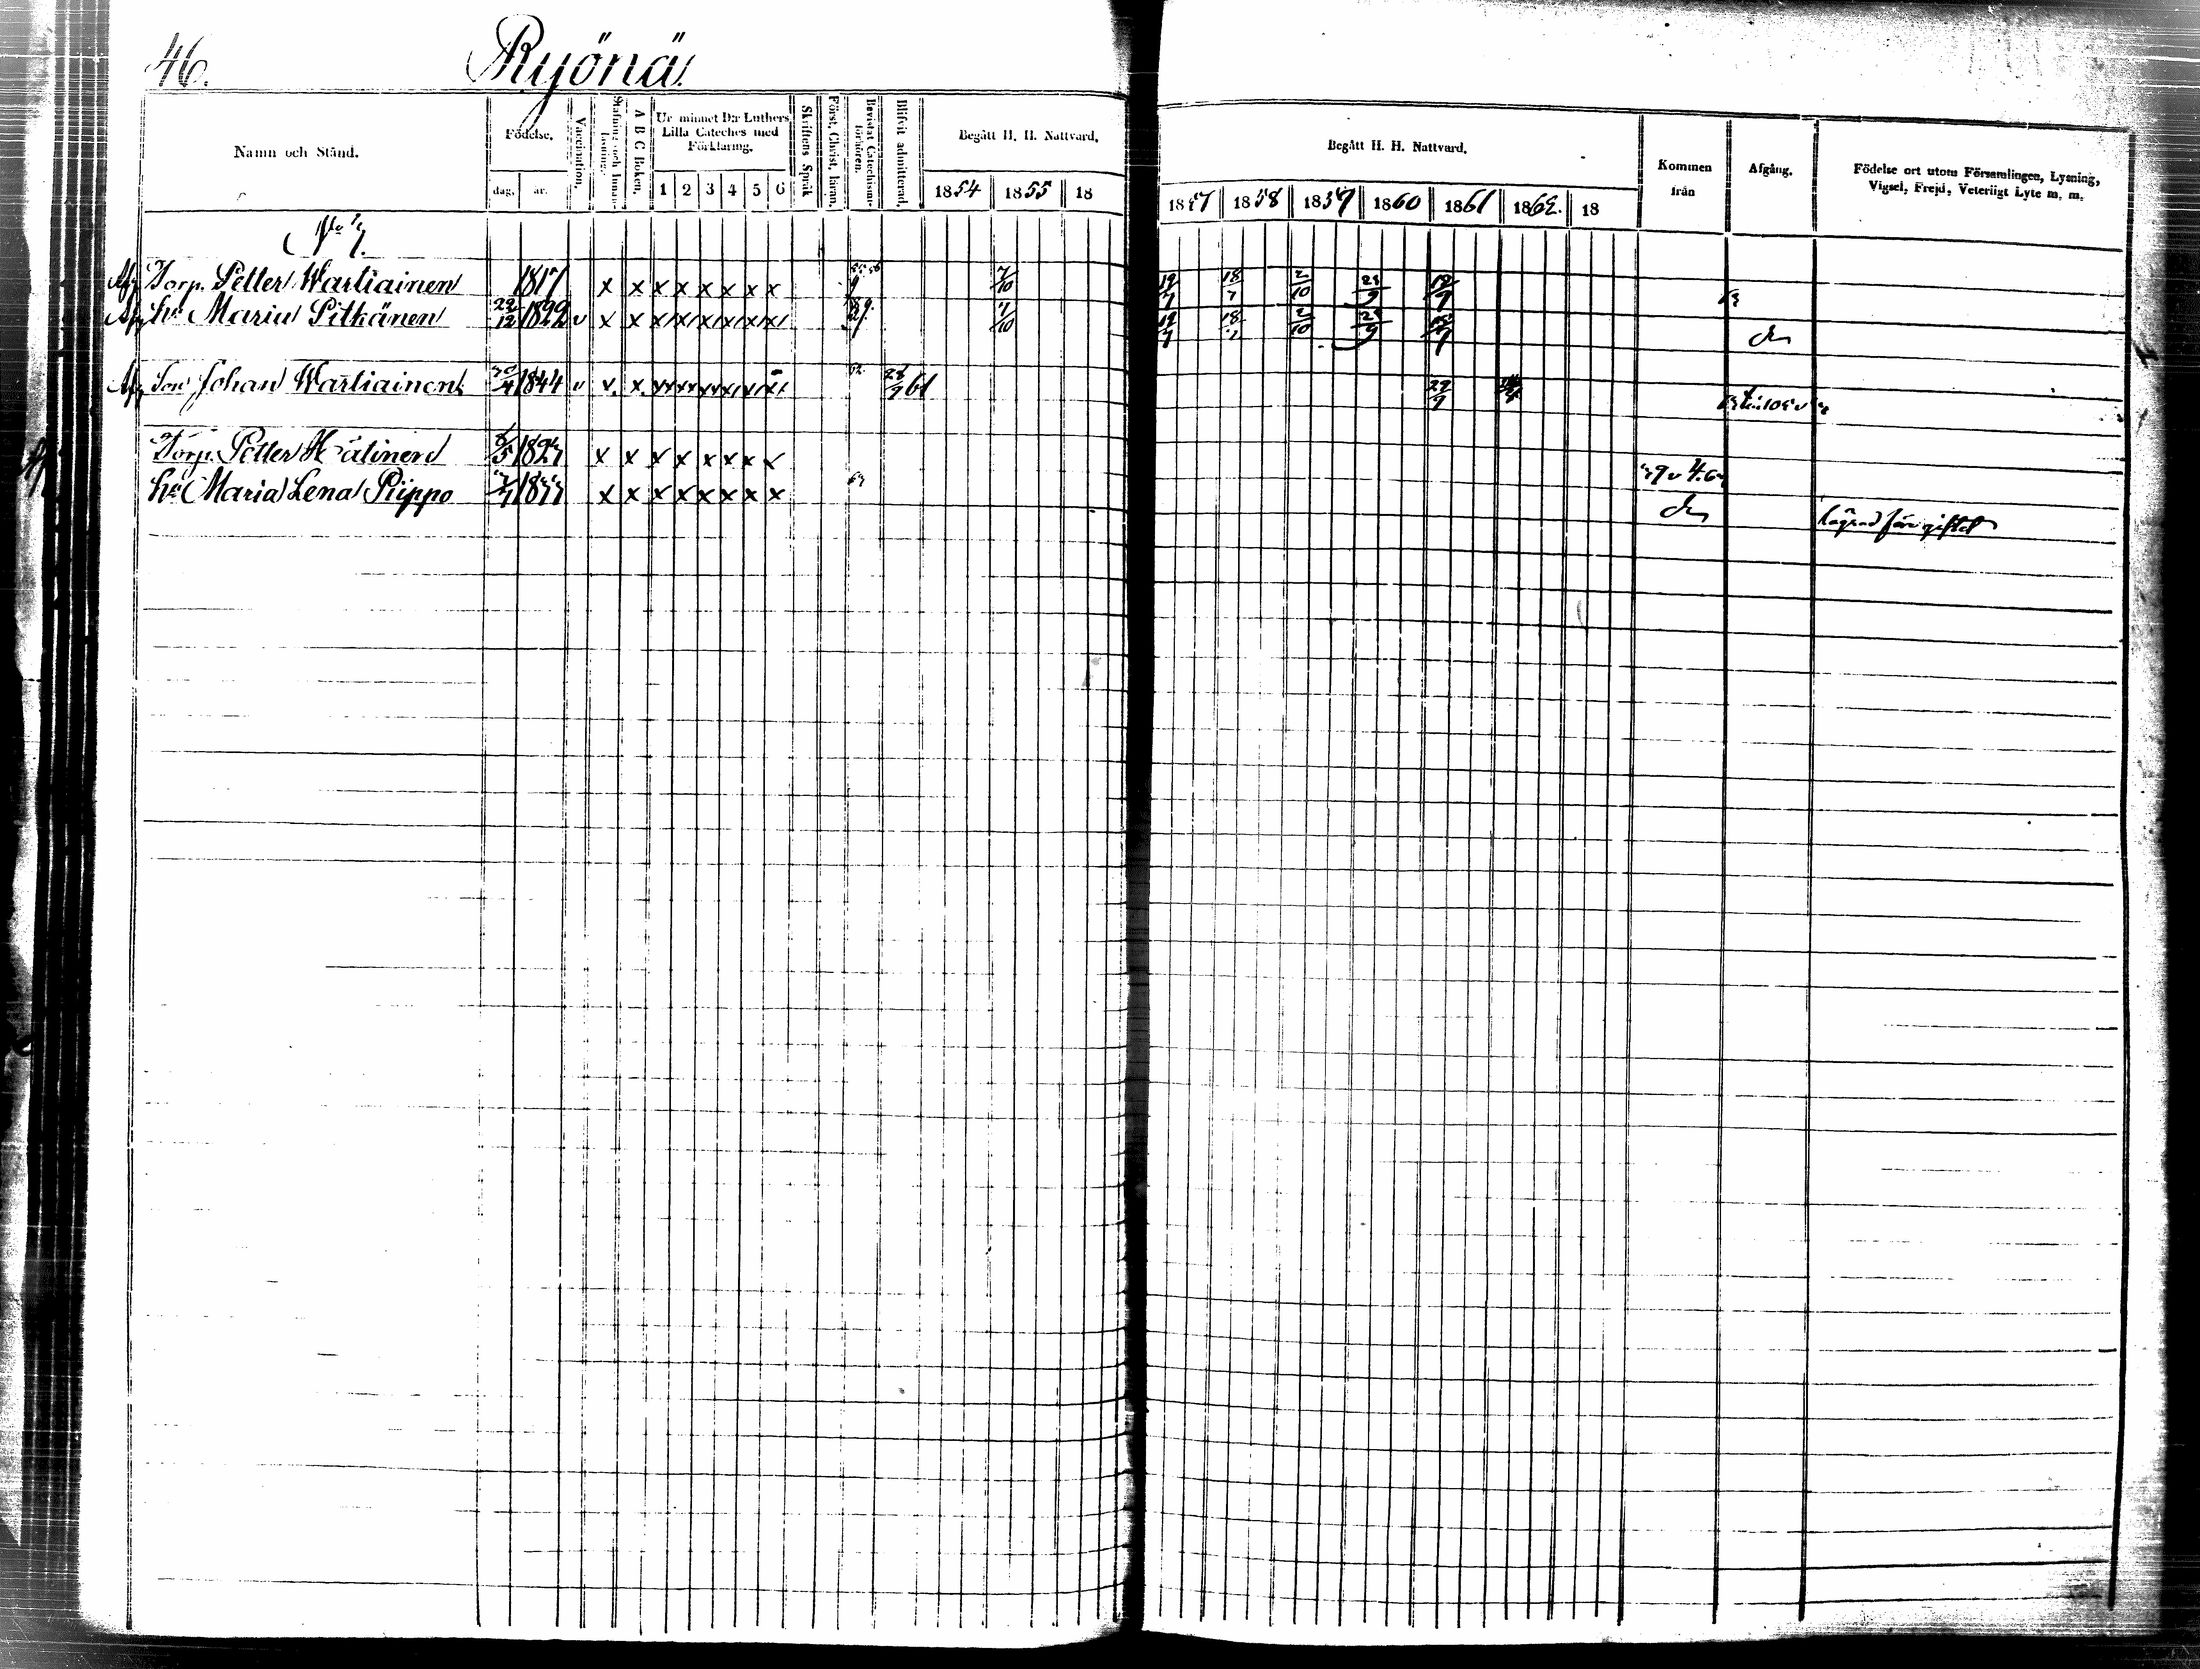 46. Ryönä
Namn och Stånd.
Födelse.
dag. år.
Vaccination.
A B C Boken.
Ur minnet D:r Luthers Lilla Cateches med Förklaring.
1 2 3 4 5 6
Skriftens Språk
Först. Christ. läran.
Bevistat Catechismi-förhören.
Blifvit admitterad.
Begått H. H. Nattvard.
1854 1855 18
Begått H. H. Nattvard.
1857 1858 1859 1860 1861 1862. 18
Kommen från
Afgång.
Födelse ort utom Församlingen, Lysning, Vigsel, Frejd, Veterligt Lyte m. m.
Torp. Petter Wartiainen 1817 x x x x x x x x 7/10 19/7 18/7 2/10 23/9
Hu Maria Pitkänen 22/12 1822 v x x x x x x x x 7/10 19/7 18/7 2/10 23/9 do
Son Johan Wartiainen 1844 v x x x x x x x x 61
Torp. Petter Hätinen 6/5 1827 x x x x x x x x
Hu Maria Lena Piippo x x x x x x x x do lägrad före giftet